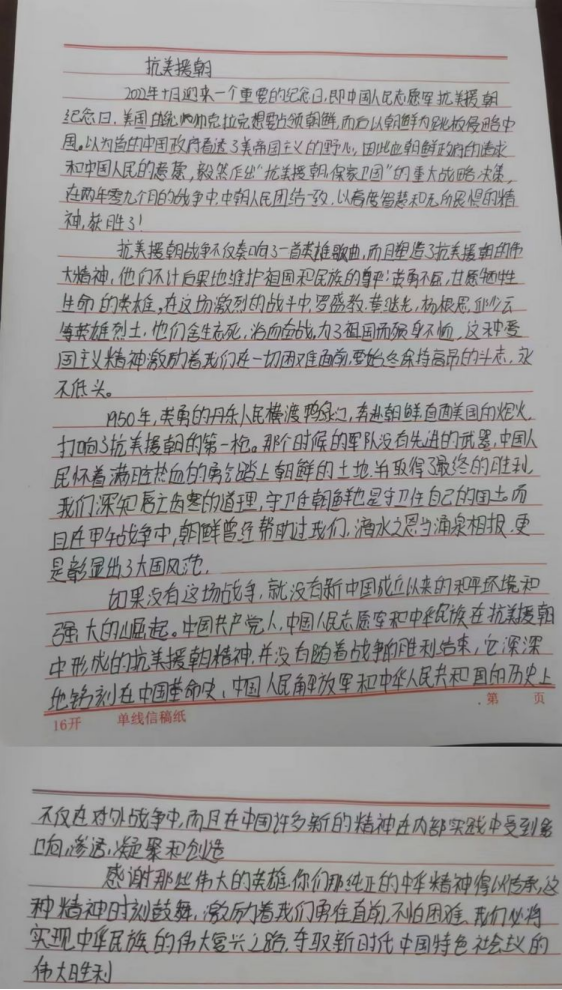 抗美援朝
2022年十月迎来一个重要的纪念日,即中国人民志愿军抗美援朝
纪念日,美国的想要占领朝鲜,而后以朝鲜为跳板侵略中
国。以为首的中国政府看透了美帝国主义的野心,因此应朝鲜政府的请求
和中国人民的意愿,毅然作出“抗美援朝保家卫国”的重大战略决策,
在两年零九个月的战争中,中朝人民团结一致,以高度智慧和无所畏惧的精
神,获胜了!
抗美援朝战争不仅奏响了一首英雄歌曲,而且塑造了抗美援朝的伟
大精神,他们不计后果地维护祖国和民族的尊严:英勇不屈,甘愿牺牲
生命的英雄,在这场激烈的战斗中,罗盛教,黄继光,杨根思,邱少云
等英雄烈士,他们舍生忘死,浴血奋战,为了祖国而献身不顾,这种爱
国主义精神激励着我们在一切困难面前,要始终保持高昂的斗志,永
不低头。
1950年,英勇的丹东人民横渡鸭绿江,奔赴朝鲜直面美国的炮火,
打响了抗美援朝的第一枪。那个时候的军队没有先进的武器,中国人
民怀着满腔热血的勇气踏上朝鲜的土地,并取得了最终的胜利,
我们深知唇亡齿寒的道理,守卫住朝鲜也是守卫住自己的国土。而
且在甲午战争中,朝鲜曾经帮助过我们,滴水之恩当涌泉相报,更
是彰显出了大国风范,
如果没有这场战争,就没有新中国成立以来的和平环境和
强大的崛起。中国共产党人,中国人民志愿军和中华民族在抗美援朝
中形成的抗美援朝精神,并没有随着战争的胜利结束,它深深
地铭刻在中国革命史、中国人民解放军和中华人民共和国的历史上
16开 单线信稿纸 第 页
不仅在对外战争中,而且在中国许多新的精神在内部实践中受到影
响,渗透,凝聚和创造
感谢那些伟大的英雄,你们那纯正的中华精神得以传承,这
种精神时刻鼓舞,激励着我们勇往直前,不怕困难,我们必将
实现中华民族的伟大复兴之路,夺取新时代中国特色社会主义的
伟大胜利